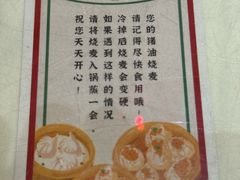 您的猪油烧麦
请记得尽快食用哦！
冷掉后烧麦会变硬，
如果遇到这样的情况
请将烧麦入锅蒸一会
祝您天天开心！